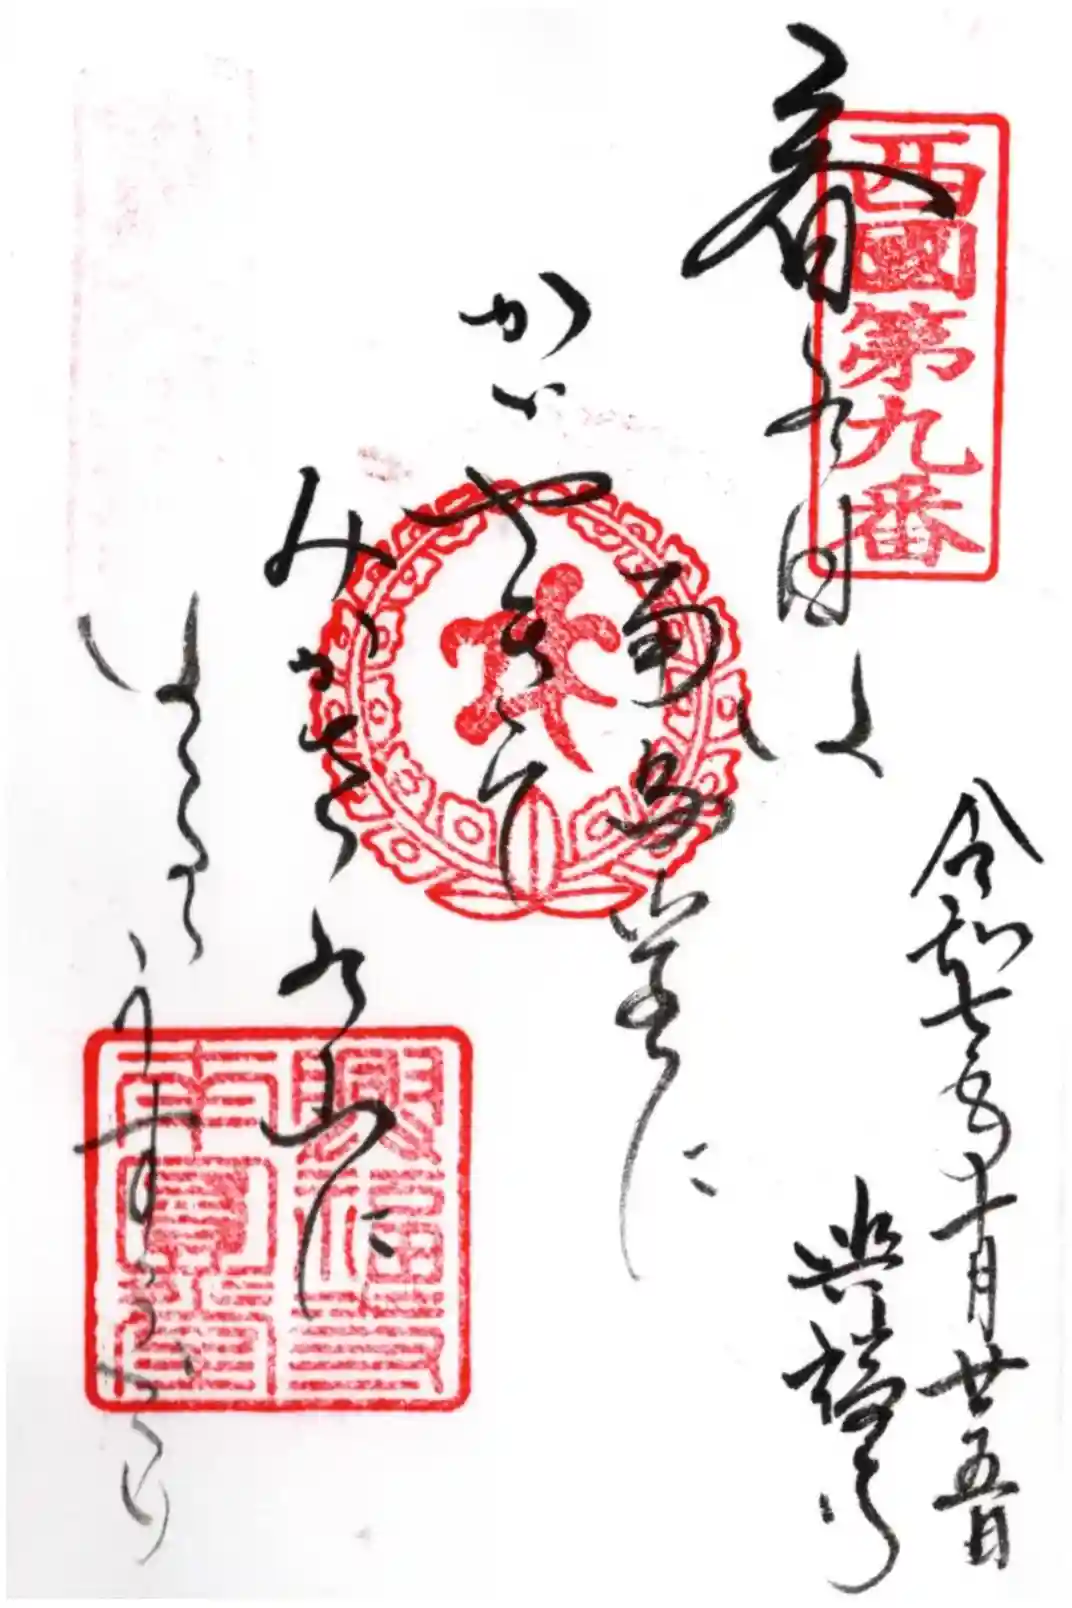 西國第九番
令和七年十月廿五日
興福寺
春の日は
南圓堂に
かゞやきて
みかさの山に
はるゝうすぐも
興福寺
南圓堂